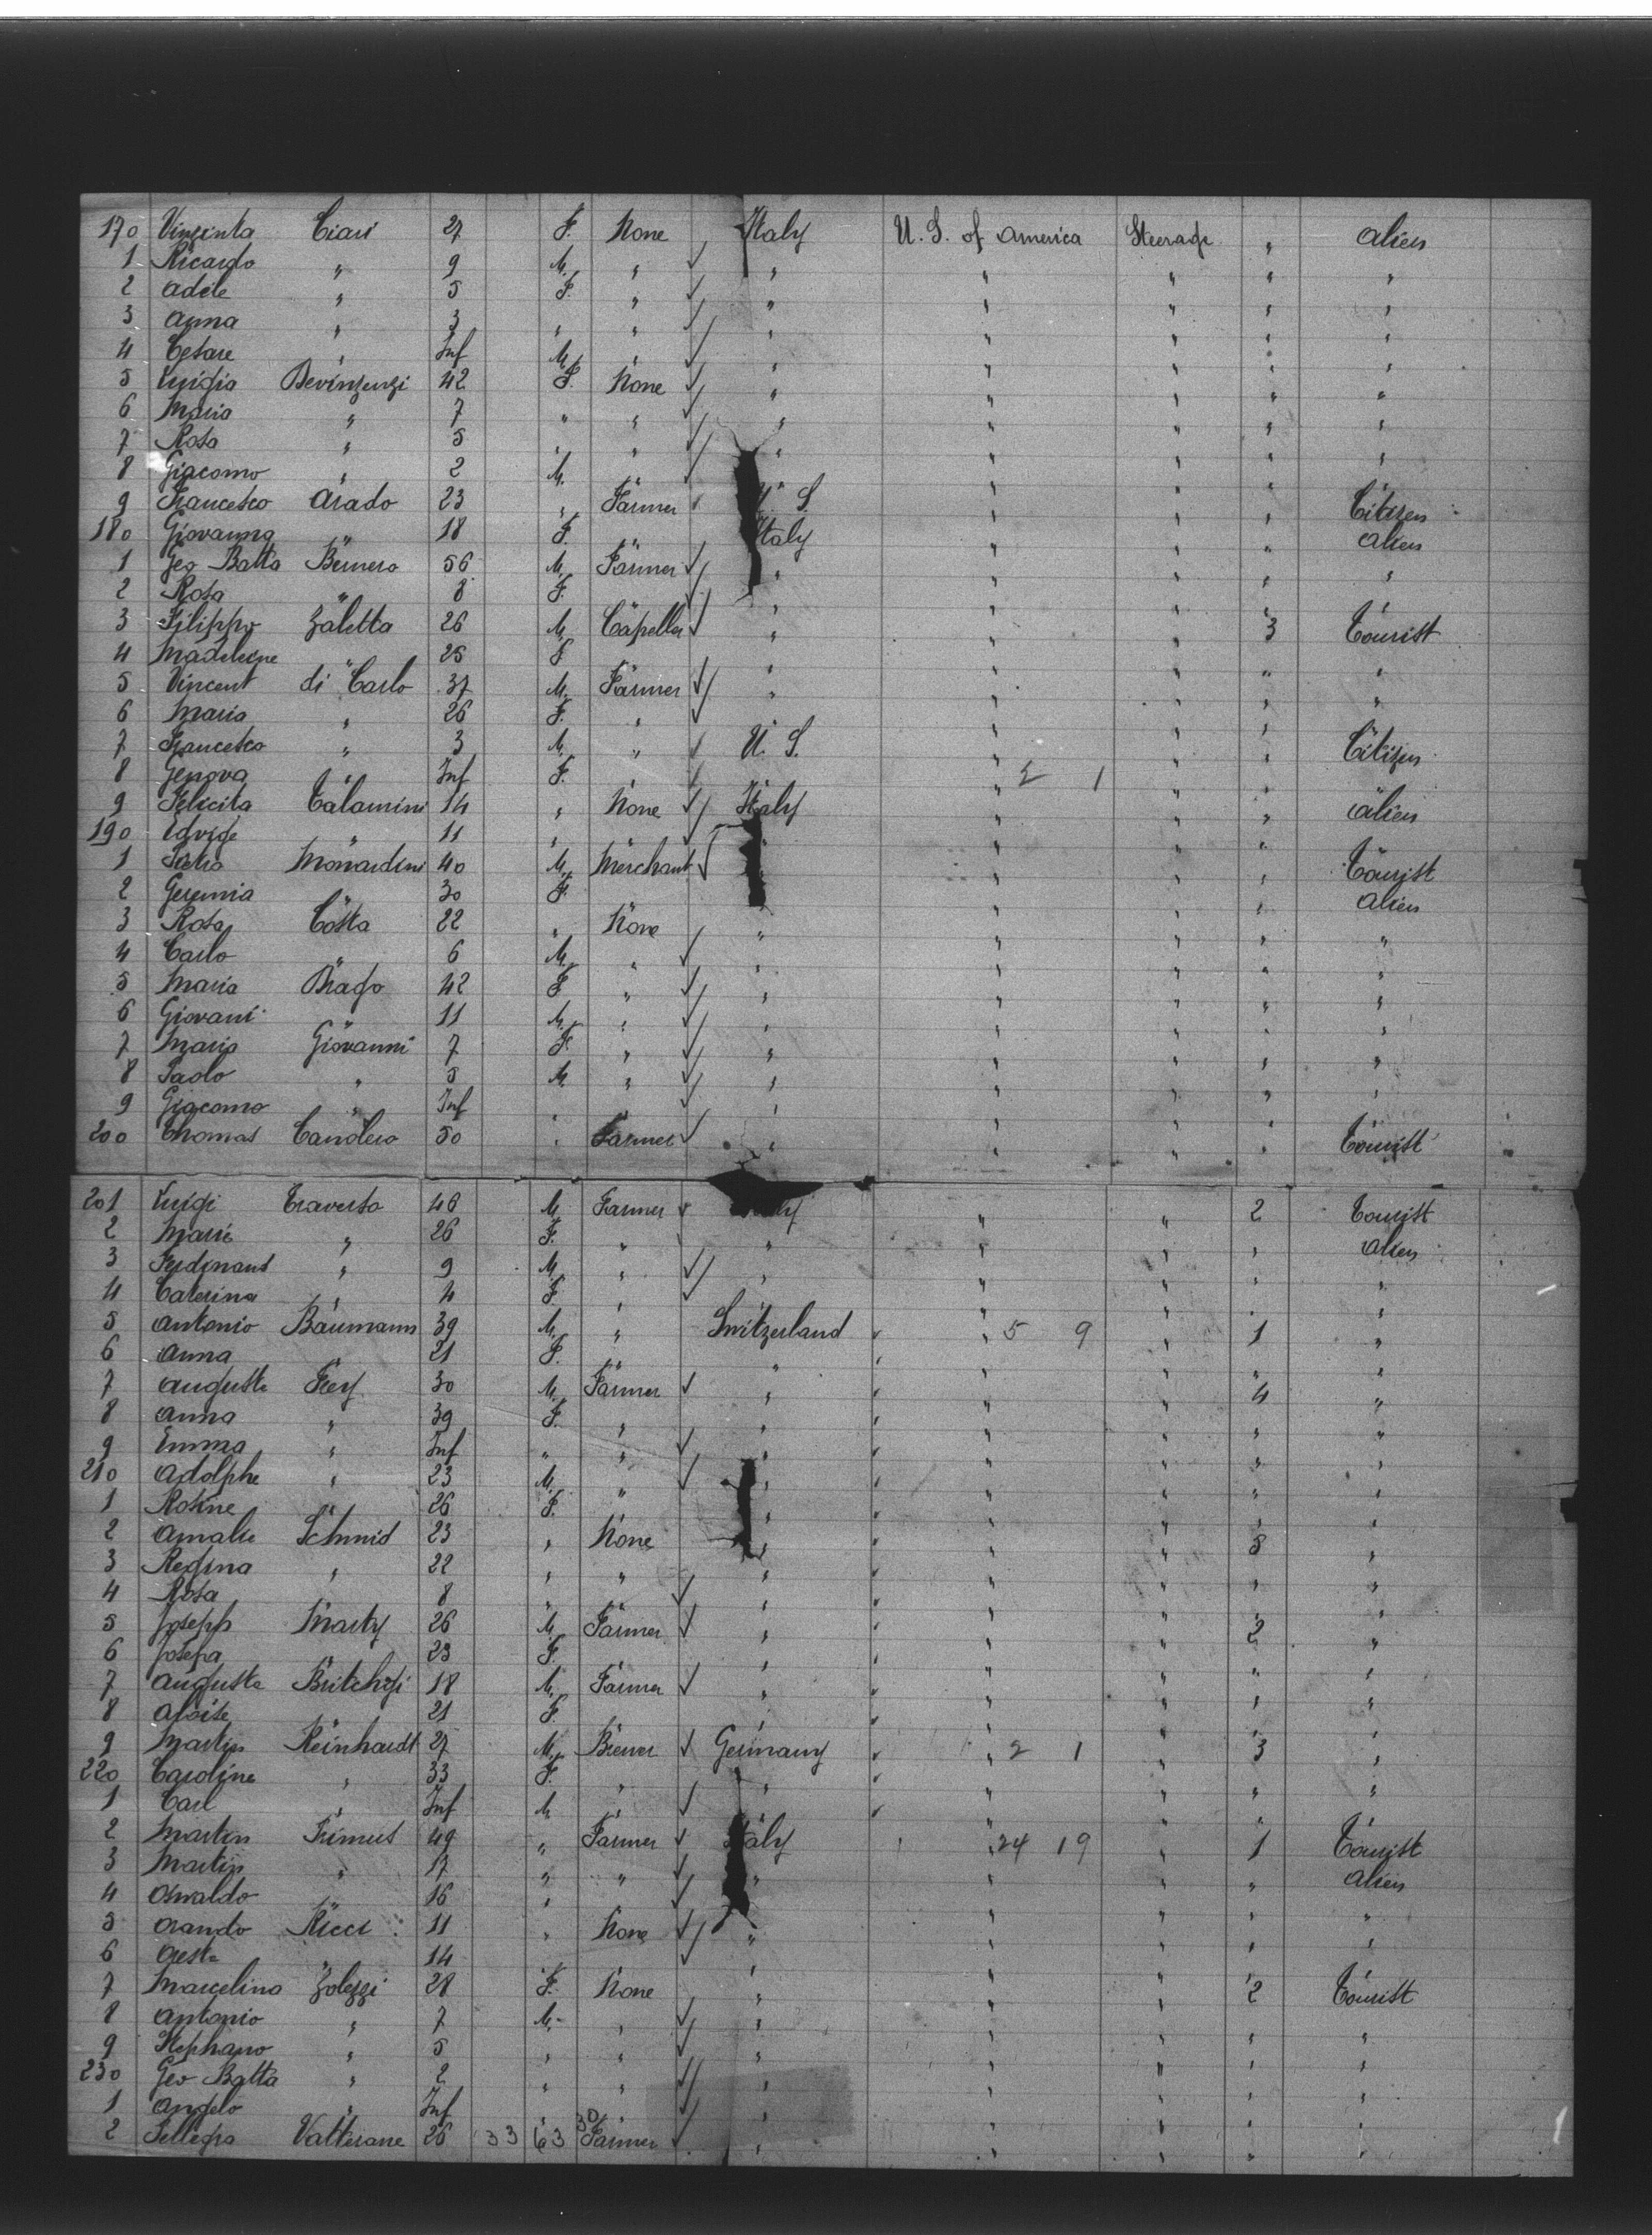 170 Vinzinta Ciari 27 F. None Italy U. S. of America Steerage " Alien
1 Ricardo " 9 M. " " " " " "
2 Adele " 5 F. " " " " " "
3 Anna " 3 " " " " " " "
4 Cesare " Inf M. " " " " " "
5 Luigia Bevinzenzi 42 F. None " " " " "
6 Maria " 7 " " " " " " "
7 Rosa " 5 " " " " " " "
8 Giacomo " 2 M. " " " " " "
9 Francesco Arado 23 " Farmer U. S. " " " Citizen
180 Giovanna " 18 F. " Italy " " " Alien
1 Geo Batta Bernero 56 M. Farmer " " " " "
2 Rosa " 8 F. " " " " " "
3 Filippo Zaletta 26 M. Capeller " " " 3 Tourist
4 Madeleine " 25 F " " " " " "
5 Vincent di Carlo 37 M. Farmer " " " " "
6 Maria " 26 F. " " " " " "
7 Francesco " 3 M. " U. S. " " " Citizen
8 Genova " Inf F. " " " 2 1 " " "
9 Felicita Calamini 14 " None Italy " " " Alien
190 Edvige " 11 " " " " " " "
1 Pietro Monardini 40 M. Merchant " " " " Tourist
2 Geremia " 30 F. " " " " " Alien
3 Rosa Costa 22 " None " " " " "
4 Carlo " 6 M. " " " " " "
5 Maria Brago 42 F " " " " " "
6 Giovani " 11 M. " " " " " "
7 Maria Giovanni 7 F. " " " " " "
8 Paolo " 5 M. " " " " " "
9 Giacomo " Inf " " " " " " "
200 Thomas Candero 50 " Farmer " " " " Tourist
201 Luigi Traverso 46 M. Farmer Italy " " 2 Tourist
2 Marie " 26 F. " " " " " Alien
3 Ferdinand " 9 M. " " " " " "
4 Caterina " 4 F. " " " " " "
5 Antonio Baumann 39 M. " Switzerland " 5 9 " 1 "
6 Anna " 21 F. " " " " " "
7 Auguste Frey 30 M. Farmer " " " 4 "
8 Anna " 39 F. " " " " " "
9 Emma " Inf " " " " " " "
210 Adolphe " 23 M. " " " " " "
1 Rosine " 26 F. " " " " " "
2 Amalie Schmid 23 " None " " " 3 "
3 Regina " 22 " " " " " " "
4 Rosa " 8 " " " " " " "
5 Joseph Marty 26 M. Farmer " " " 2 "
6 Josepa " 23 F. " " " " " "
7 Auguste Britchgi 18 M. Farmer " " " " "
8 Aloise " 21 F. " " " " " "
9 Martin Reinhardt 27 M. Brewer Germany " 2 1 " 3 "
220 Caroline " 33 F. " " " " " "
1 Carl " Inf M. " " " " " "
2 Martin Primus 49 " Farmer Italy " 24 19 " 1 Tourist
3 Martin " 17 " " " " " " Alien
4 Oswaldo " 16 " " " " " " "
5 Orando Ricci 11 " None " " " " "
6 Oreste " 14 " " " " " " "
7 Marcelina Zolezzi 28 F. None " " " 2 Tourist
8 Antonio " 7 M. " " " " " "
9 Stephano " 5 " " " " " " "
230 Geo Batta " 2 " " " " " " "
1 Angelo " Inf " " " " " " "
2 Pellegra Valterane 26 33 63 30 Farmer " " " " "